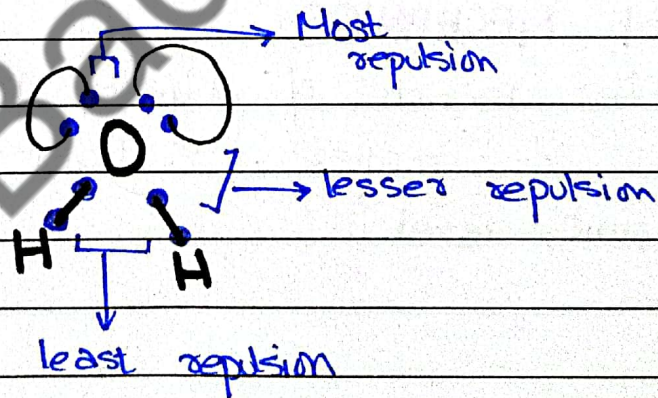 Most
repulsion
O
lesser repulsion
H
H
least repulsion